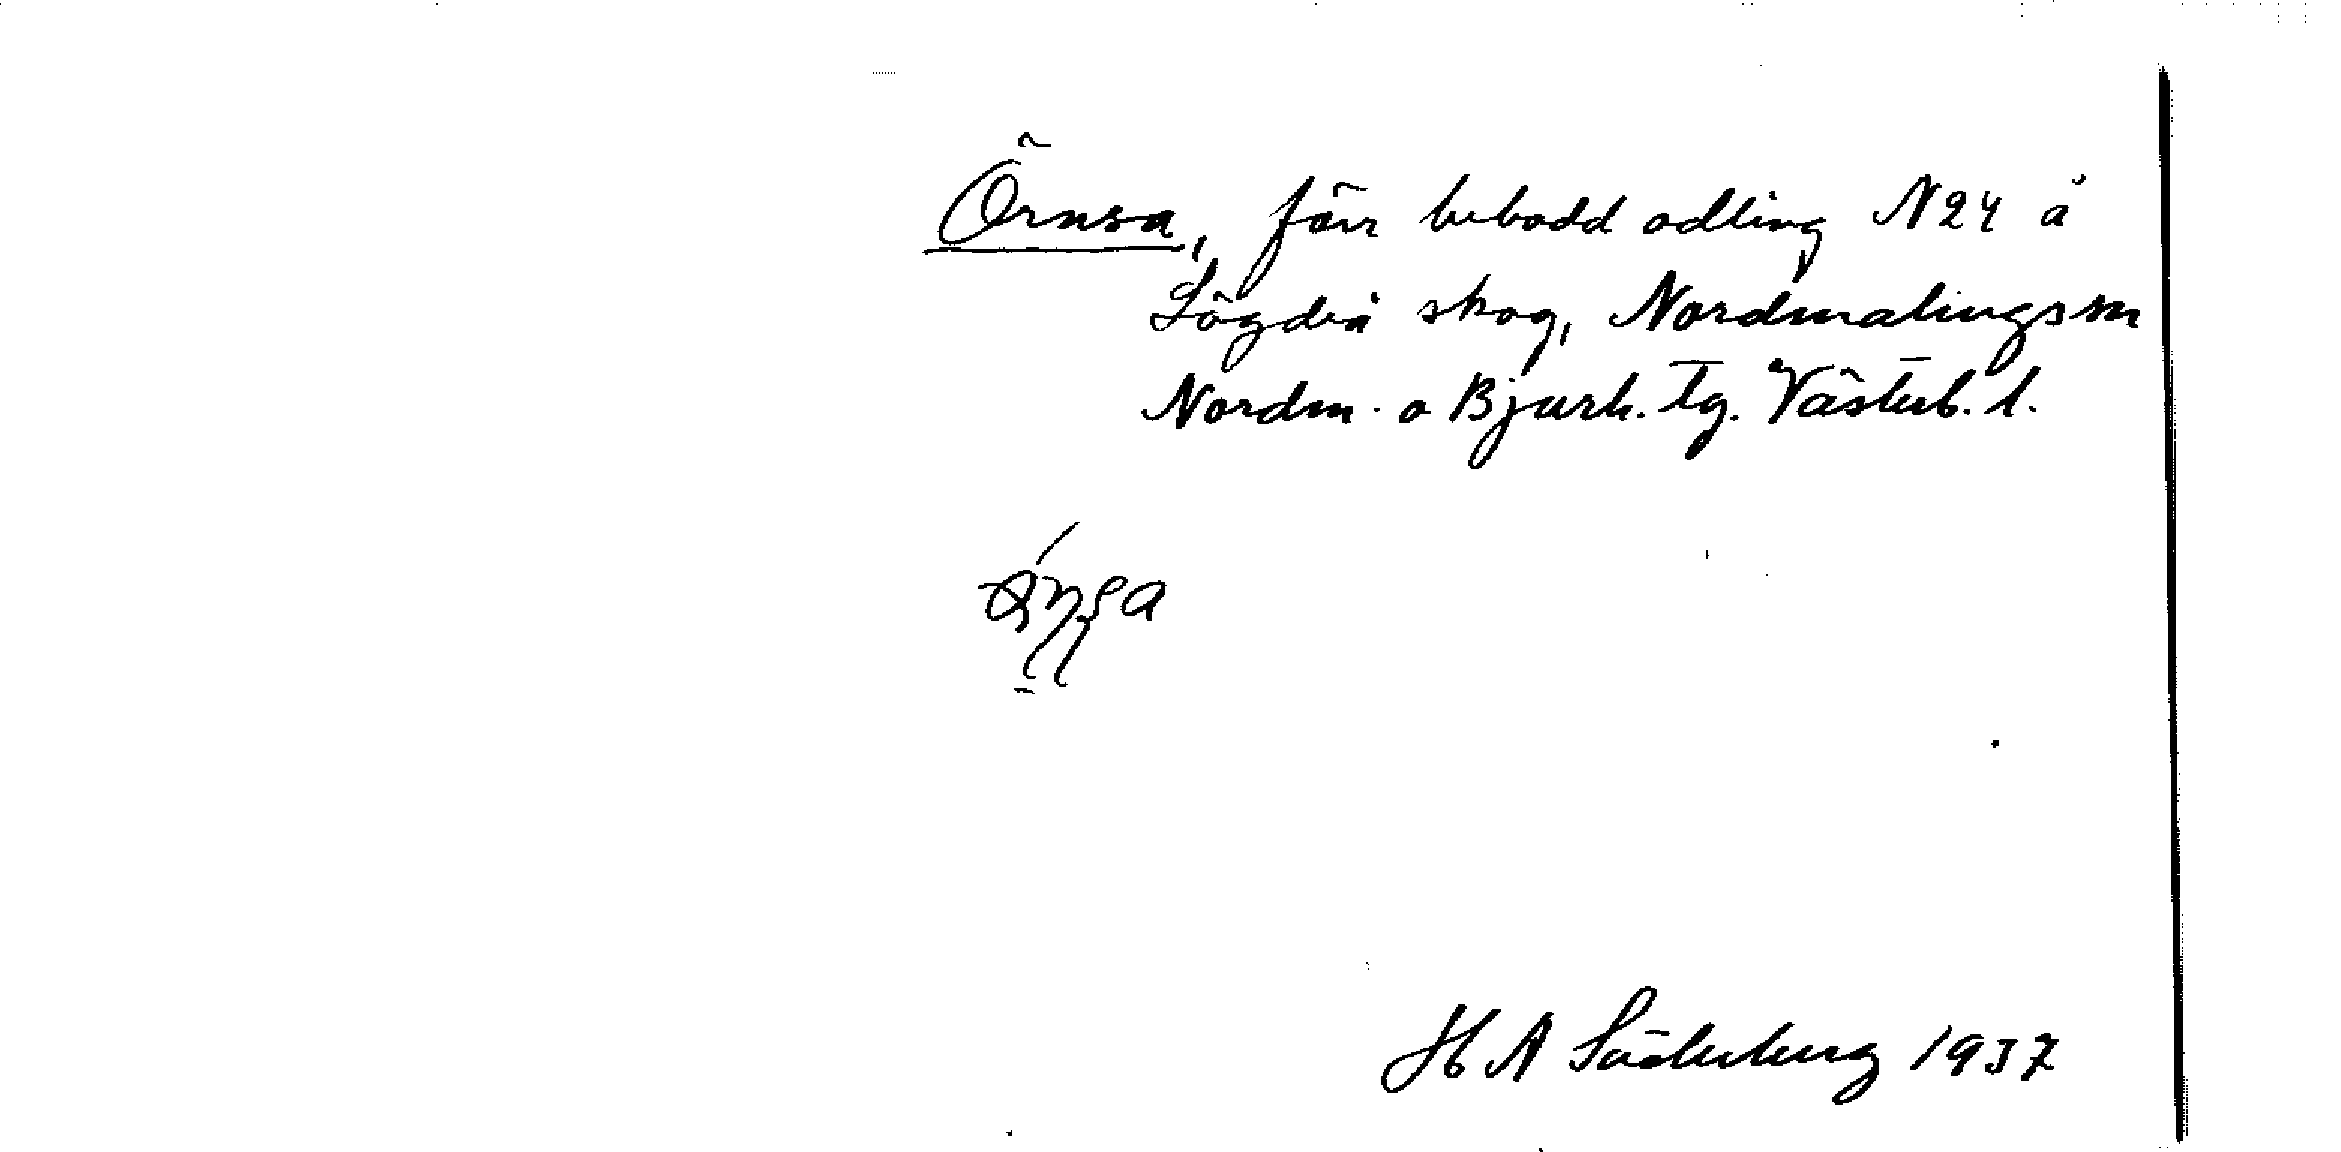 Örnsa, förr bebodd odling N24 å
Lögdeå skog, Nordmalingssn
Nordm. o Bjurh. Tg. Västerb. l.
H A Söderberg 1937